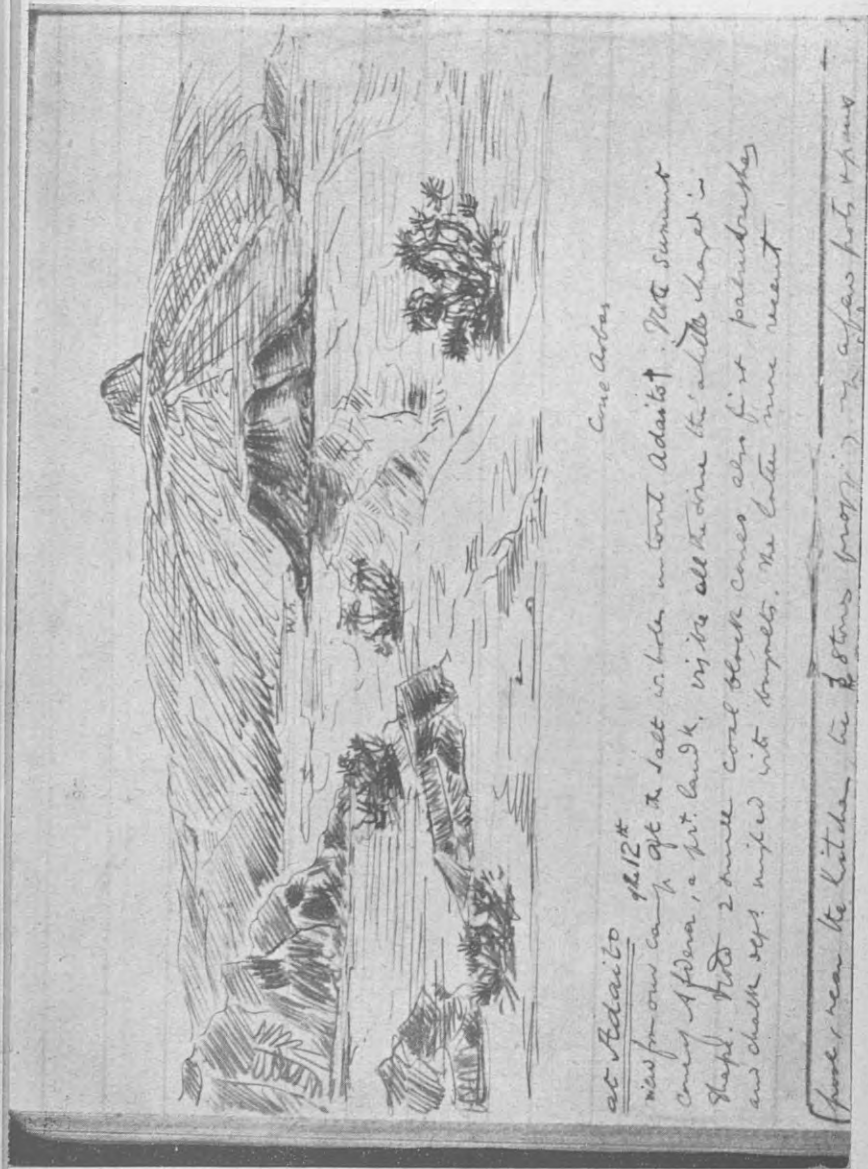 W.A.
Cone Arbas
at Adaito 12th
view from our camp at the salt w. holes in front Adaito. Note summit
cone of Afdera, a gt. landk. visible all the time tho' a little changed in
shape. Note 2 small coal black cones also first palmbushes
and chalk deps. mixed with basalts. The latter more recent
pool, near the kitchen, the stones a few pots & pans